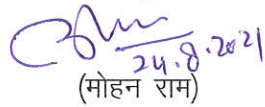 24.8.2021
(मोहन राम)